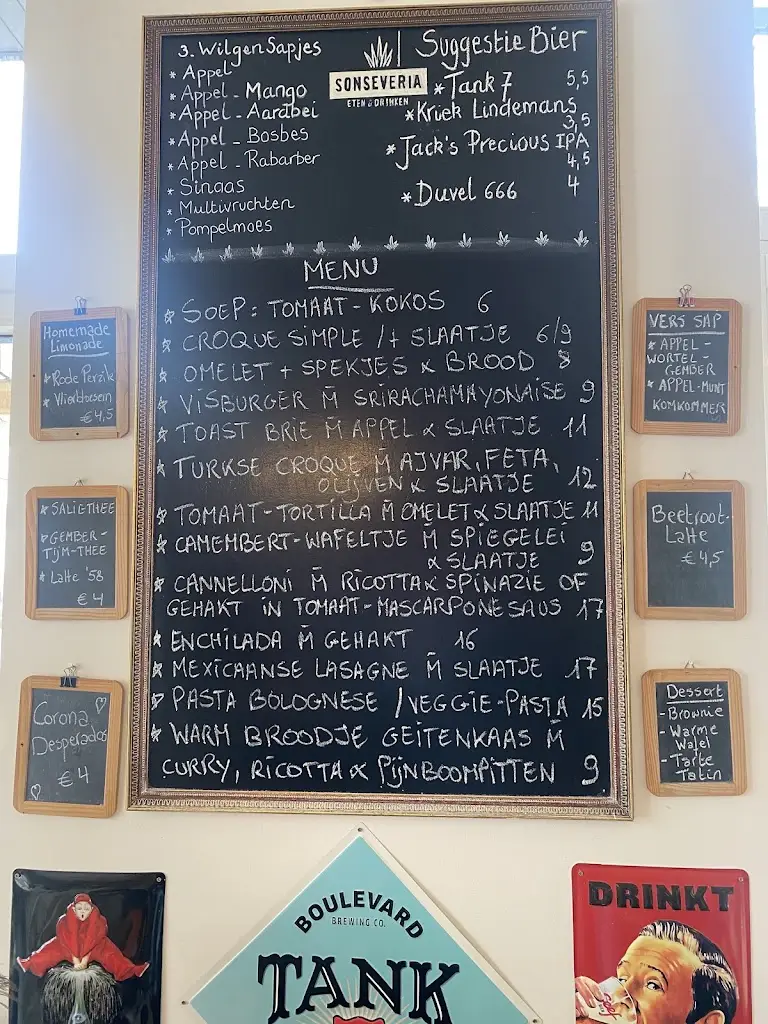 3. Wilgen Sapjes
* Appel
* Appel - Mango
* Appel - Aarabei
* Appel - Bosbes
* Appel - Rabarber
* Sinaas
* Multivruchten
* Pompelmoes
SONSEVERIA
ETEN & DRINKEN
Suggestie Bier
* Tank 7 5,5
* Kriek Lindemans 3,5
* Jack's Precious IPA 4,5
* Duvel 666 4
MENU
* SOEP: TOMAAT-KOKOS 6
* CROQUE SIMPLE /+ SLAATJE 6/9
* OMELET + SPEKJES & BROOD 8
* VISBURGER M̄ SRIRACHAMAYONAISE 9
* TOAST BRIE M̄ APPEL & SLAATJE 11
* TURKSE CROQUE M̄ AJVAR, FETA,
OLIJVEN & SLAATJE 12
* TOMAAT-TORTILLA M̄ OMELET & SLAATJE 11
* CAMEMBERT-WAFELTJE M̄ SPIEGELEI
& SLAATJE 9
* CANNELLONI M̄ RICOTTA & SPINAZIE OF
GEHAKT IN TOMAAT-MASCARPONESAUS 17
* ENCHILADA M̄ GEHAKT 16
* MEXICAANSE LASAGNE M̄ SLAATJE 17
* PASTA BOLOGNESE / VEGGIE-PASTA 15
* WARM BROODJE GEITENKAAS M̄
CURRY, RICOTTA & PIJNBOOMPITTEN 9
Homemade
Limonade
* Rode Perzik
* Vlierbloesem
€4,5
* SALIETHEE
* GEMBER-
TIJM-THEE
* Latte '58
€4
Corona
Desperados
€4
VERS SAP
* APPEL-
WORTEL-
GEMBER
* APPEL-MUNT
KOMKOMMER
Beetroot-
Latte
€4,5
Dessert
- Brownie
- Warme
Wafel
- Tarte
Tatin
BOULEVARD
BREWING CO.
TANK
DRINKT